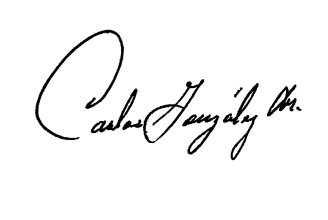 Carlos González Jr.